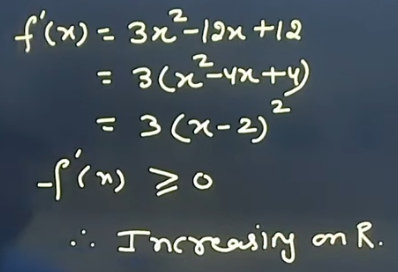 f'(x) = 3x²-12x+12
= 3(x²-4x+4)
= 3(x-2)²
f'(x) ≥ 0
∴ Increasing on R.